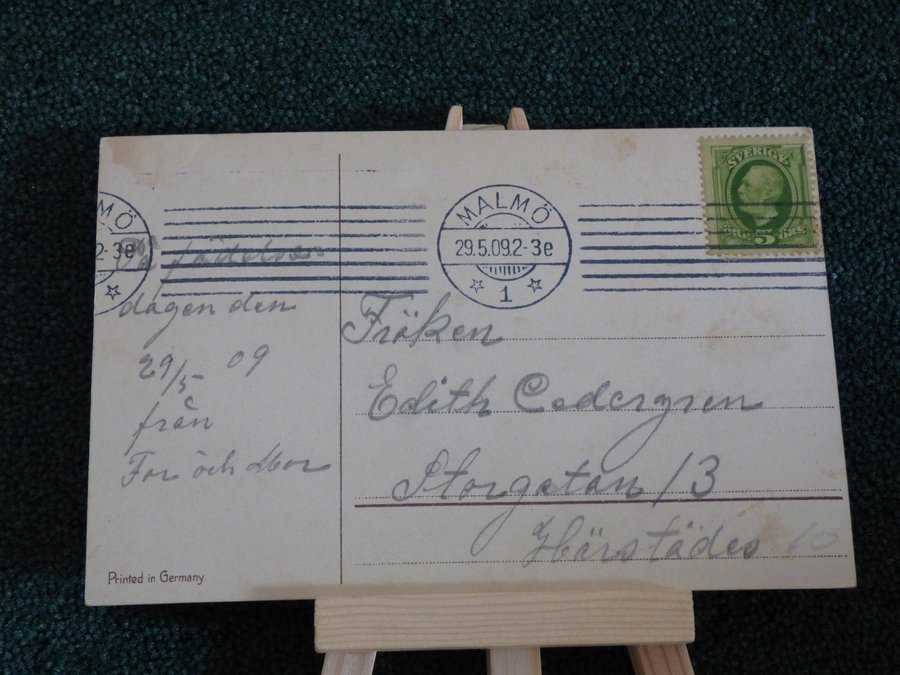 MALMÖ
2-3e
På födelse
dagen den
29/5 09
från
Far och Mor
Printed in Germany.
MALMÖ
29.5.09.2-3e
1
SVERIGE
5 ÖRE
Fröken
Edith Cedergren
Storgatan 13
Härstädes